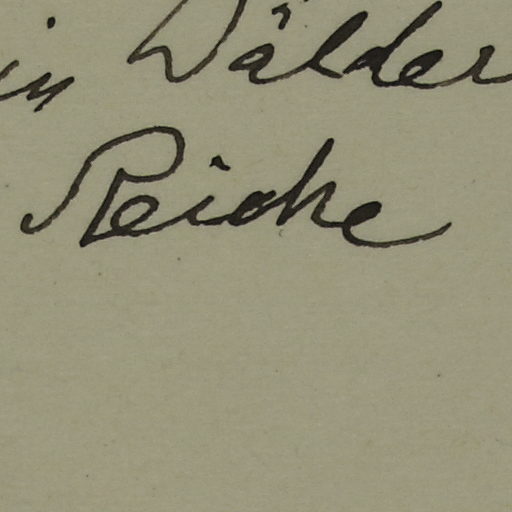 in Wälder
Reiche